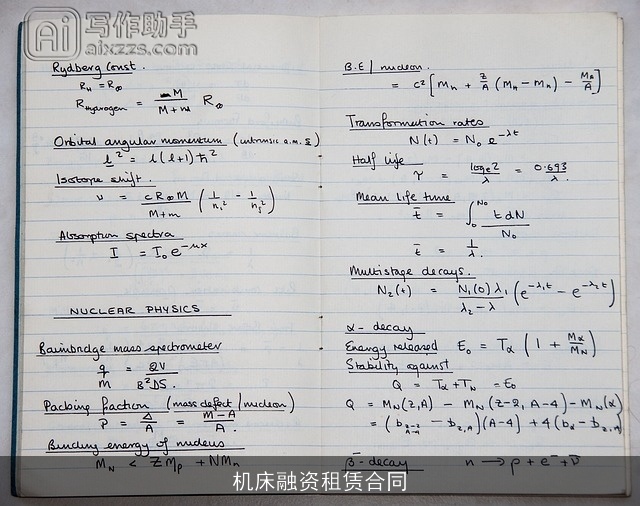 Ai 写作助手
aixzzs.com
Rydberg Const.
R_H = R_∞
R_Hydrogen = M / (M+m) R_∞
Orbital angular momentum (intrinsic a.m. s)
l² = l(l+1)ħ²
Isotope shift.
ν = c R_∞ M / (M+m) (1/n_i² - 1/n_j²)
Absorption spectra
I = I₀e^(-μx)
NUCLEAR PHYSICS
Bainbridge mass spectrometer
q/m = QV / B²DS.
Packing fraction (mass defect/nucleon)
P = Δ/A = (M-A)/A.
Binding energy of nucleus
M_N < ZM_p + NM_n
B.E/nucleon.
= c² [M_n + Z/A (M_H - M_n) - M_A/A]
Transformation rates
N(t) = N₀ e^(-λt)
Half life
τ = log_e 2 / λ = 0.693 / λ.
Mean life time
t̄ = ∫₀^N₀ t dN / N₀
t̄ = 1/λ.
Multistage decays.
N₂(t) = N₁(0)λ₁ / (λ₂-λ) (e^(-λ₁t) - e^(-λ₂t))
α-decay
Energy released E₀ = T_α (1 + M_α/M_N)
Stability against
Q = T_α + T_N = E₀
Q = M_N(Z,A) - M_N(Z-2,A-4) - M_N(α)
= (b_(Z-2,A-4) - b_Z,A)(A-4) + 4(b_α - b_Z,A)
β⁻-decay n → p + e⁻ + ν̄
机床融资租赁合同